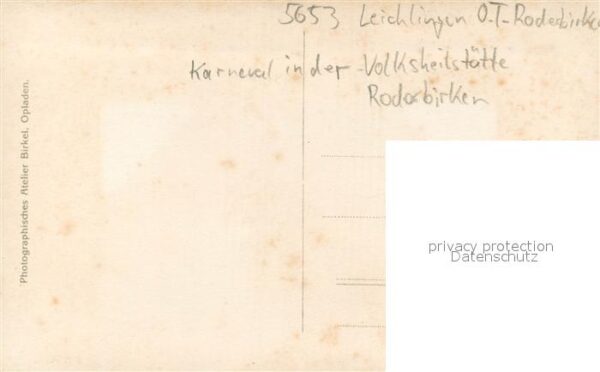 5653 Leichlingen O.T. Roderbirken
Karneval in der Volksheilstätte
Roderbirken
Photographisches Atelier Birkel, Opladen.
privacy protection
Datenschutz